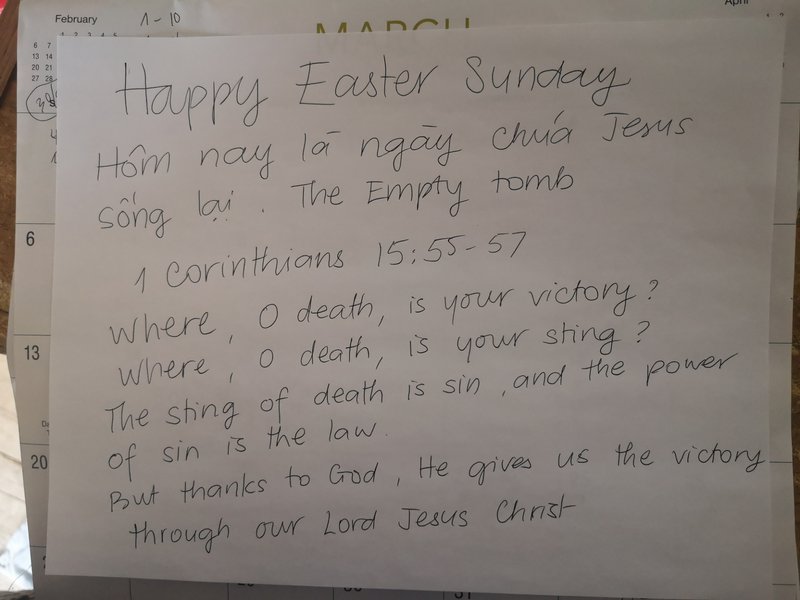 February
1-10
April
MARCH
6 7
13 14
20 21
27 28
6
13
20
Happy Easter Sunday
Hôm nay là ngày chúa Jesus
sống lại. The Empty tomb
1 Corinthians 15:55-57
Where, O death, is your victory?
Where, O death, is your sting?
The sting of death is sin, and the power
of sin is the law.
But thanks to God, He gives us the victory
through our Lord Jesus Christ